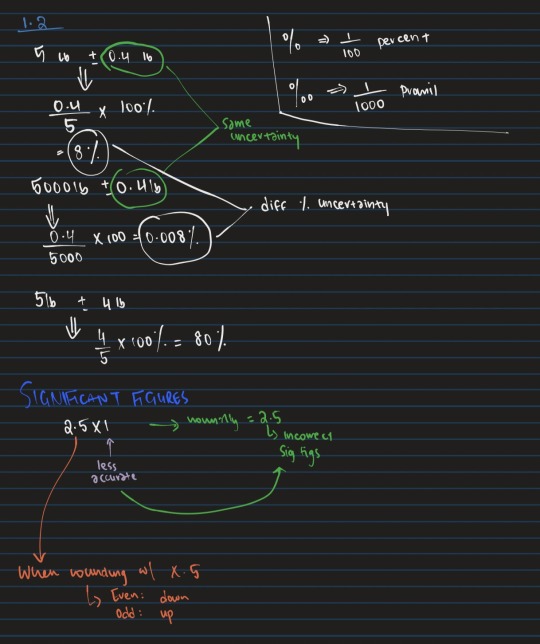 1.2
5 lb ± 0.4 lb
⇓
0.4/5 × 100%
= 8%
5000lb ± 0.4lb
⇓
0.4/5000 × 100 = 0.008%
same
uncertainty
diff % uncertainty
% ⇒ 1/100 percent
%00 ⇒ 1/1000 promil
5lb ± 4lb
⇓ 4/5 × 100% = 80%
SIGNIFICANT FIGURES
2.5 × 1 → normally = 2.5
↳ incorrect
sig figs
↑
less
accurate
When rounding w/ X.5
↳ Even: down
Odd: up